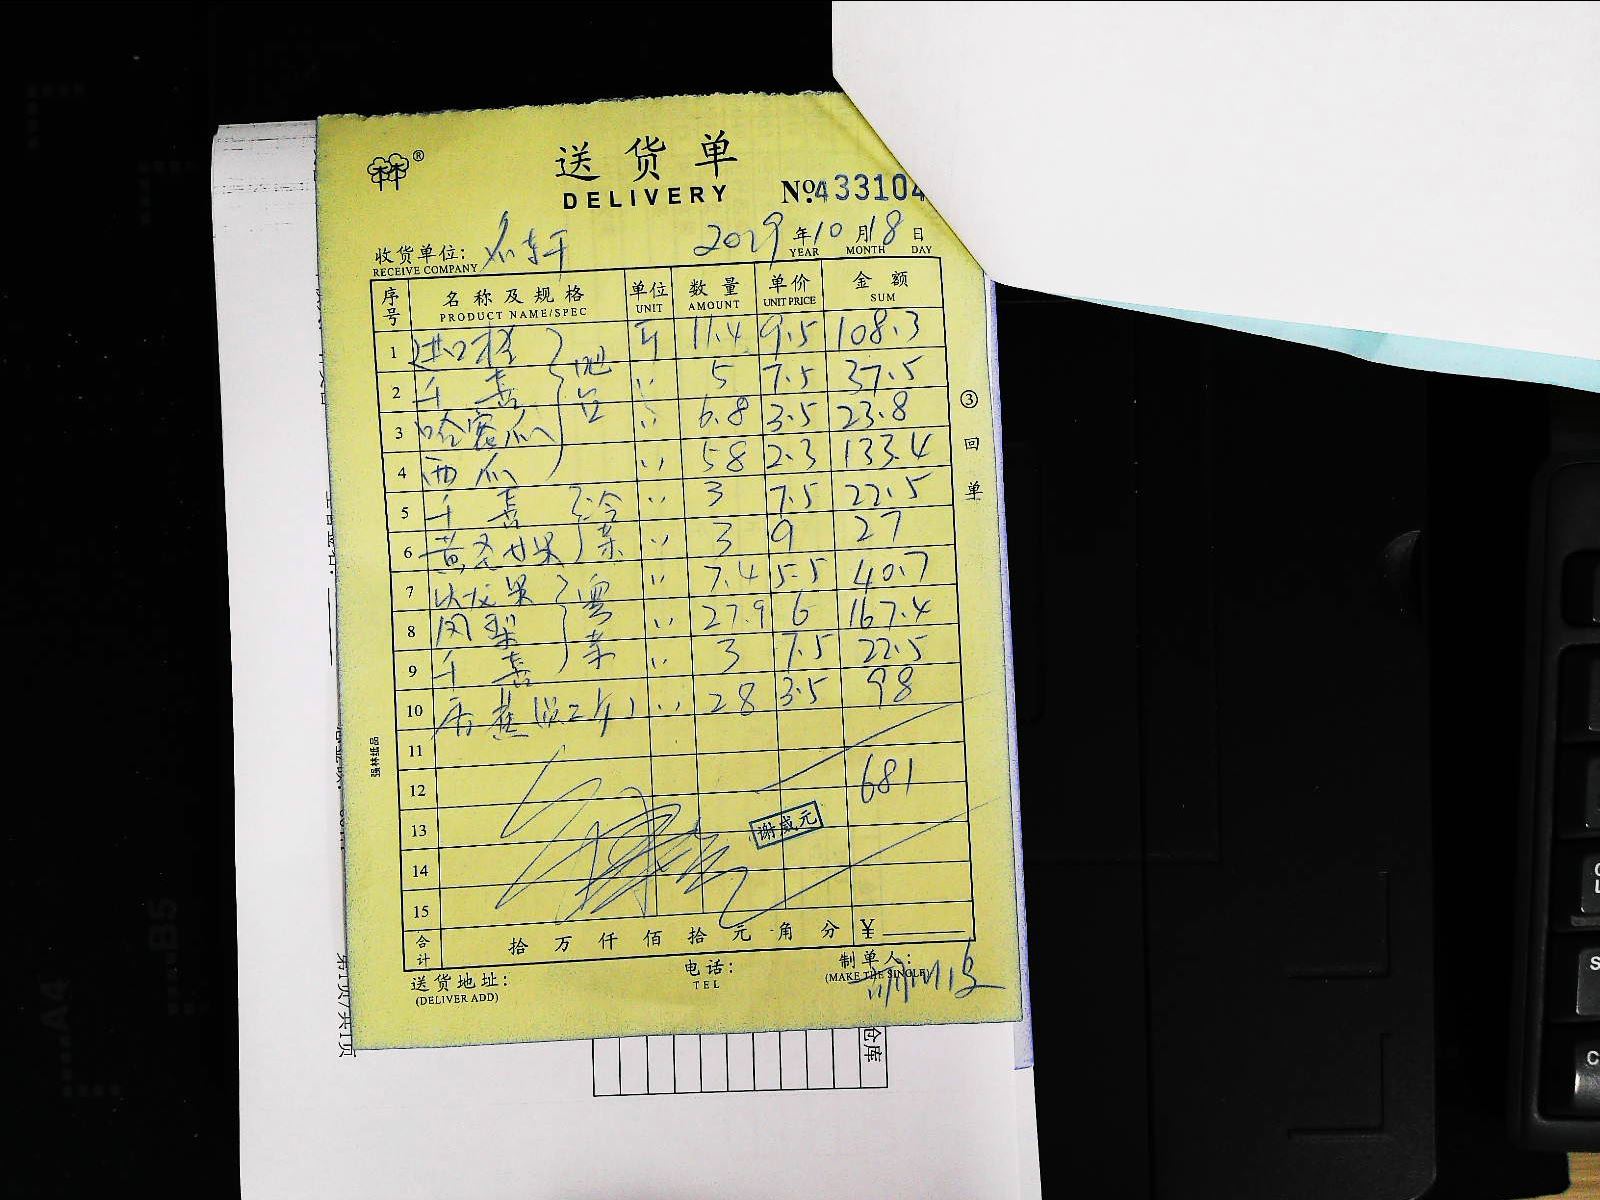 送货单
DELIVERY
№433104
收货单位: 2029年10月18日
RECEIVE COMPANY YEAR MONTH DAY
序号 名称及规格 单位 数量 单价 金额
PRODUCT NAME/SPEC UNIT AMOUNT UNIT PRICE SUM
1 进口橙 斤 11.4 9.5 108.3
2 千喜 〃 5 7.5 37.5
3 哈密瓜 〃 6.8 3.5 23.8
4 西瓜 〃 58 2.3 133.4
5 千喜 〃 3 7.5 22.5
6 黄圣女果 〃 3 9 27
7 火龙果 〃 7.4 5.5 40.7
8 凤梨 〃 27.9 6 167.4
9 千喜 〃 3 7.5 22.5
10 香蕉(员工餐) 〃 28 3.5 98
11
12 681
13 谢威元
14
15
合计 拾万仟佰拾元角分 ¥
送货地址: 电话: 制单人:
(DELIVER ADD) TEL (MAKE THE SINGLE)
③回单
强林纸品
第1页/共1页
仓库
A4
B5